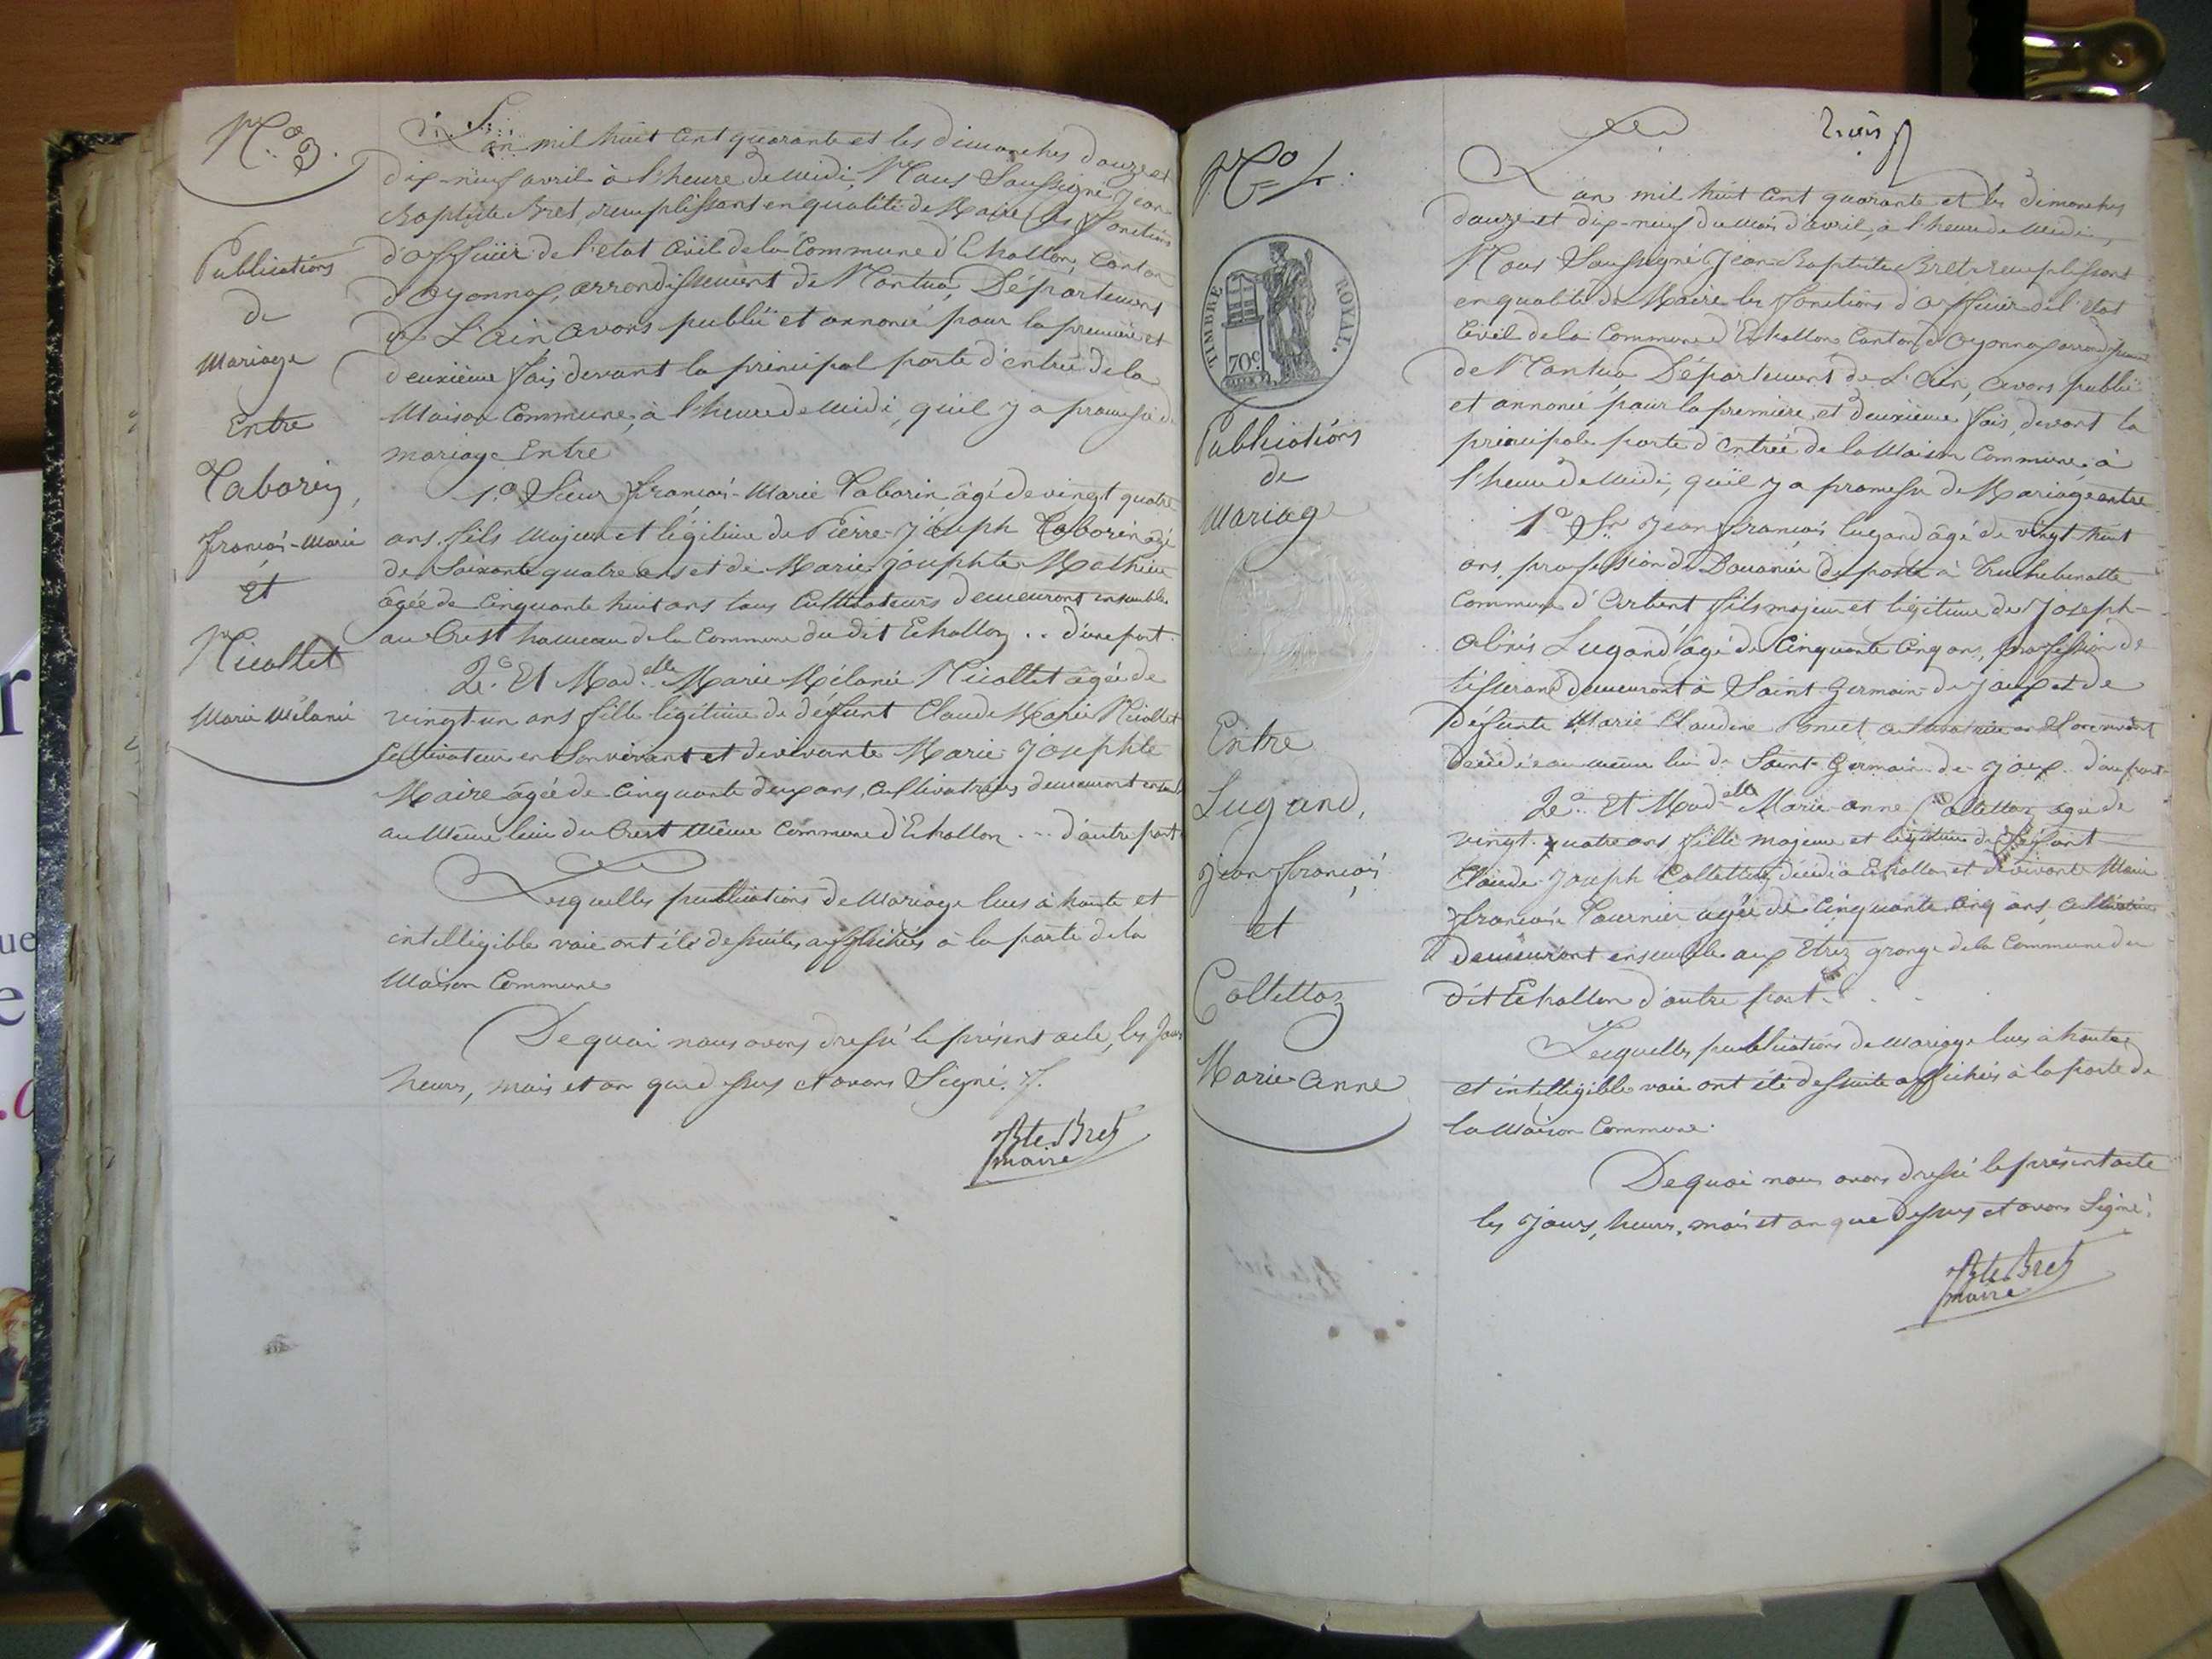 N.º 3.
Publications
de
Mariage
Entre
Taborin,
François-Marie
Et
Nicollet
Marie Mélanie
L'an mil huit cent quarante et les dimanches douze et
dix-neuf avril à l'heure de midi, Nous Soussigné Jean
Baptiste Bret, remplissant en qualité de Maire les fonctions
d'officier de l'état civil de la Commune d'Echallon, Canton
d'Oyonnax, arrondissement de Nantua, Département
de L'Ain avons publié et annoncé pour la première et
deuxième fois devant la principal porte d'entrée de la
Maison Commune, à l'heure de midi, qu'il y a promesse de
mariage Entre
1.º Sieur François-Marie Taborin âgé de vingt quatre
ans, fils majeur et légitime de Pierre-Joseph Taborin âgé
de Soixante quatre ans et de Marie-Josephte Mathieu
âgée de Cinquante huit ans tous Cultivateurs demeurant ensemble
au Crest hameau de la Commune du dit Echallon .. d'une part.
2.º Et Mad.elle Marie Mélanie Nicollet âgée de
vingt-un ans fille légitime de défunt Claude Marie Nicollet
Cultivateur en Son vivant et de vivante Marie Josephte
Maire âgée de Cinquante deux ans, Cultivatrices demeurant ensemble
au Même lieu du Crest même Commune d'Echallon ... d'autre part
Lesquelles publications de Mariage lues à haute et
intelligible voie ont été de suite affichées à la porte de la
Maison Commune
De quoi nous avons dressé le présent acte, les Jours
heures, mois et an que dessus et avons Signé.
Bte Bret
maire
trois
Nº 4.
TIMBRE ROYAL.
70c
Publications
de
Mariage
Entre
Lugand,
Jean François
et
Collettaz
Marie-Anne
L'an mil huit Cent quarante et les dimanches
douze et dix-neuf du mois d'avril, à l'heure de midi,
Nous Soussigné Jean-Baptiste Bret remplissant
en qualité de Maire les fonctions d'officier de l'état
Civil de la Commune d'Echallon Canton d'Oyonnax arrondissement
de Nantua Département de L'Ain, avons publié
et annoncé pour la première et deuxième fois, devant la
principale porte d'entrée de la Maison Commune, à
l'heure de midi, qu'il y a promesse de Mariage entre
1º Sr Jean François Lugand âgé de vingt-huit
ans, profession de Douanier du poste à
Commune d'Arbent fils majeur et légitime de Joseph
Lugand âgé de Cinquante Cinq ans, profession de
tisserand demeurant à Saint-Germain-de-Joux et de
Défunte Marie Claudine Poncet Cultivatrice en Son vivant
décédée au même lieu de Saint-Germain-de-Joux d'une part
2.º Et Mad.elle Marie-anne Collettaz âgée de
vingt-quatre ans fille majeure et légitime de Défunt
Claude-Joseph Collettaz décédé à Echallon et de vivante Marie
Françoise Tournier âgée de Cinquante Cinq ans, Cultivatrice
Demeurant ensemble aux Etrez grange de la Commune du
dit Echallon d'autre part
Lesquelles publications de mariage lues à haute
et intelligible voie ont été de suite affichées à la porte de
la Maison Commune.
De quoi nous avons dressé le présent acte
les Jours, heures, mois et an que dessus et avons Signé.
Bte Bret
maire